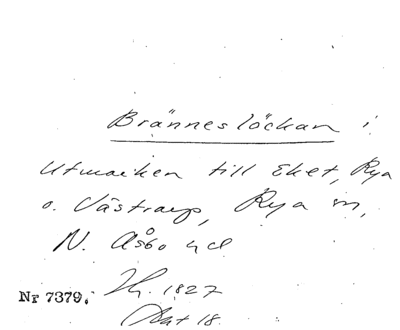 Bränneslöckan i
Utmarken till Eket, Rya
o. Västraup, Rya sn,
N. Åsbo hd
Nr 7379. 1827
18